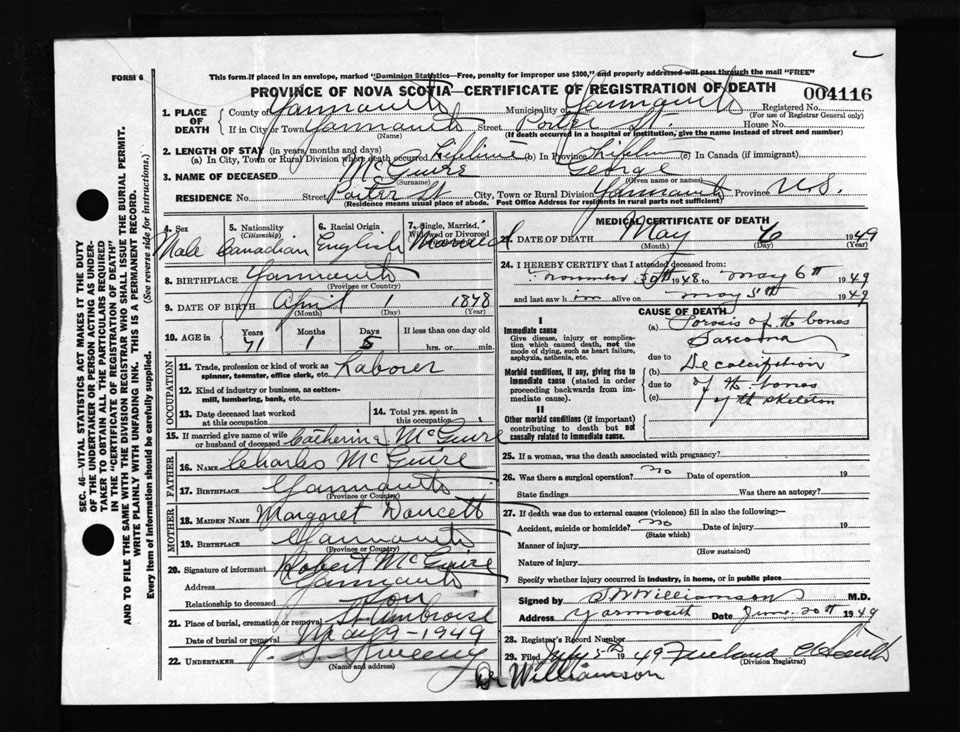 FORM 6
This form if placed in an envelope, marked "Dominion Statistics—Free, penalty for improper use $300," and properly addressed will pass through the mail "FREE"
PROVINCE OF NOVA SCOTIA—CERTIFICATE OF REGISTRATION OF DEATH
004116
1. PLACE OF DEATH
County of Yarmouth Municipality of Yarmouth Registered No.
(For use of Registrar General only)
If in City or Town Yarmouth Street Porter St. House No.
(Name) (If death occurred in a hospital or institution, give the name instead of street and number)
2. LENGTH OF STAY (in years, months and days)
(a) In City, Town or Rural Division where death occurred Lifetime (b) In Province (c) In Canada (if immigrant)
3. NAME OF DECEASED McGuire George
(Surname) (Given name or names)
RESIDENCE No. Street Porter St City, Town or Rural Division Yarmouth Province N.S.
(Residence means usual place of abode. Post Office Address for residents in rural parts not sufficient)
4. Sex Male
5. Nationality (Citizenship) Canadian
6. Racial Origin English
7. Single, Married, Widowed or Divorced Married
8. BIRTHPLACE Yarmouth
(Province or Country)
9. DATE OF BIRTH April 1 1878
(Month) (Day) (Year)
10. AGE in Years Months Days If less than one day old
71 1 5 hrs. or min.
OCCUPATION
11. Trade, profession or kind of work as spinner, teamster, office clerk, etc. Laborer
12. Kind of industry or business, as cotton-mill, lumbering, bank, etc.
13. Date deceased last worked at this occupation
14. Total yrs. spent in this occupation
15. If married give name of wife or husband of deceased Catherine McGuire
FATHER
16. NAME Charles McGuire
17. BIRTHPLACE Yarmouth
(Province or Country)
MOTHER
18. MAIDEN NAME Margaret Doucett
19. BIRTHPLACE Yarmouth
(Province or Country)
20. Signature of informant Robert McGuire
Address Yarmouth
Relationship to deceased Son
21. Place of burial, cremation or removal St. Ambroise
Date of burial or removal May 9 - 1949
22. UNDERTAKER Sweeny
(Name and address)
Dr Williamson
MEDICAL CERTIFICATE OF DEATH
DATE OF DEATH May 6 1949
(Month) (Day) (Year)
24. I HEREBY CERTIFY that I attended deceased from:
November 30th 1948 to May 6th 1949
and last saw him alive on May 5th 1949
CAUSE OF DEATH
I
Immediate cause
Give disease, injury or complication which caused death, not the mode of dying, such as heart failure, asphyxia, asthenia, etc.
(a) Porosis of the bones
Sarcoma
Morbid conditions, if any, giving rise to immediate cause (stated in order proceeding backwards from immediate cause).
due to Decalcification
(b) due to of the bones
(c) of the skeleton
II
Other morbid conditions (if important) contributing to death but not causally related to immediate cause.
25. If a woman, was the death associated with pregnancy?
26. Was there a surgical operation? no Date of operation 19
State findings Was there an autopsy?
27. If death was due to external causes (violence) fill in also the following:—
Accident, suicide or homicide? no Date of injury 19
(State which)
Manner of injury
(How sustained)
Nature of injury
Specify whether injury occurred in industry, in home, or in public place
Signed by Williamson M.D.
Address Yarmouth Date June 20th 1949
28. Registrar's Record Number
29. Filed July 5th 1949
(Division Registrar)
SEC. 46—VITAL STATISTICS ACT MAKES IT THE DUTY
OF THE UNDERTAKER OR PERSON ACTING AS UNDER-
TAKER TO OBTAIN ALL THE PARTICULARS REQUIRED
IN THE "CERTIFICATE OF REGISTRATION OF DEATH"
AND TO FILE THE SAME WITH THE DIVISION REGISTRAR WHO SHALL ISSUE THE BURIAL PERMIT.
WRITE PLAINLY WITH UNFADING INK. THIS IS A PERMANENT RECORD.
Every item of information should be carefully supplied. (See reverse side for instructions.)